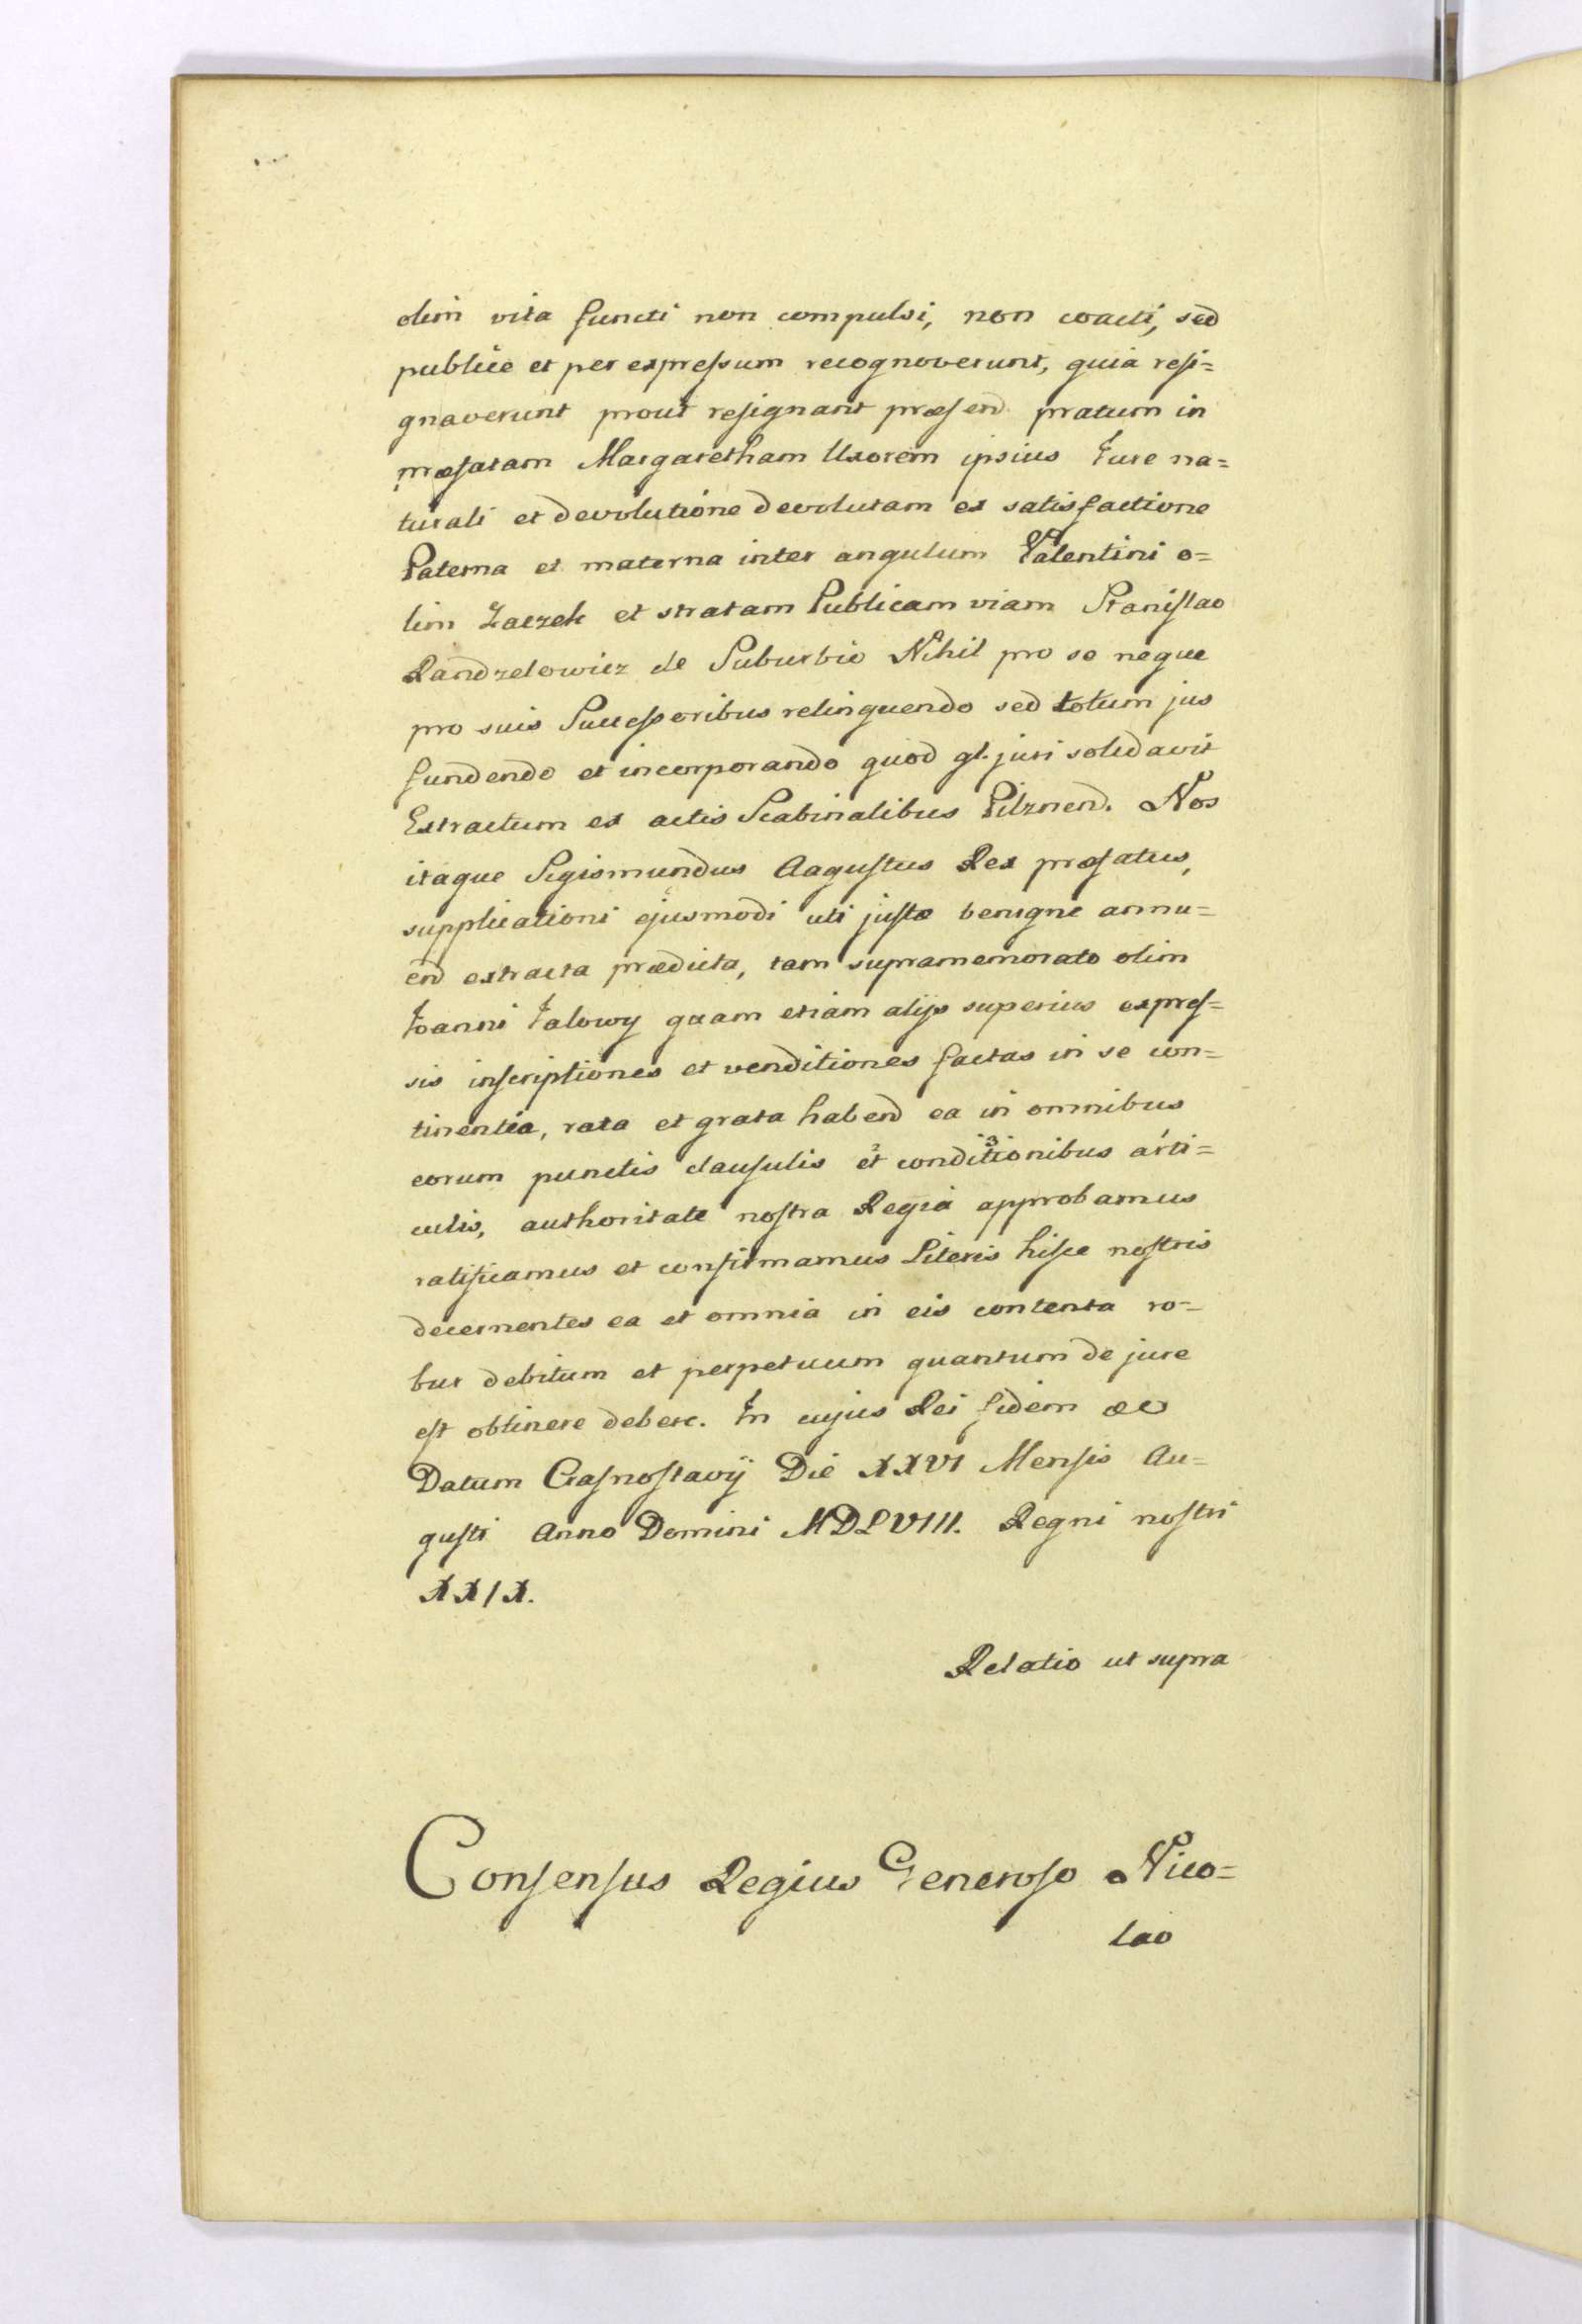 olim vita functi non compulsi, non coacti, sed
publice et per expressum recognoverunt, quia resi=
gnaverunt prout resignant præsend pratum in
præfatam Margaretham Uxorem ipsius Jure na=
turali et devolutione devolutam ex satisfactione
Paterna et materna inter angulum Valentini o=
lim Zaczek et stratam Publicam viam Stanislao
Randzelowicz de Suburbio Nihil pro se neque
pro suis Successoribus relinquendo sed totum jus
fundendo et incorporando quod gl. juri solidavit
Extractum ex actis Scabinalibus Pilznend. Nos
itaque Sigismundus Aagustus Rex præfatus,
supplicationi ejusmodi uti justæ benigne annu=
end extracta prædicta, tam supramemorato olim
Joanni Jalowy quam etiam alijs superius expres=
sis inscriptiones et venditiones factas in se con=
tinentia, rata et grata habend ea in omnibus
eorum punctis clausulis 2 et conditionibus 3 arti= 1
culis, authoritate nostra Regia approbamus
ratificamus et confirmamus Literis hisce nostris
decernentes ea et omnia in eis contenta ro=
bur debitum et perpetuum quantum de jure
est obtinere debere. In cujus Rei fidem &c
Datum Crasnostavÿ Die XXVI Mensis Au=
gusti Anno Domini MDLVIII. Regni nostri
XXIX.
Relatio ut supra
Consensus Regius Generoso Nico=
lao